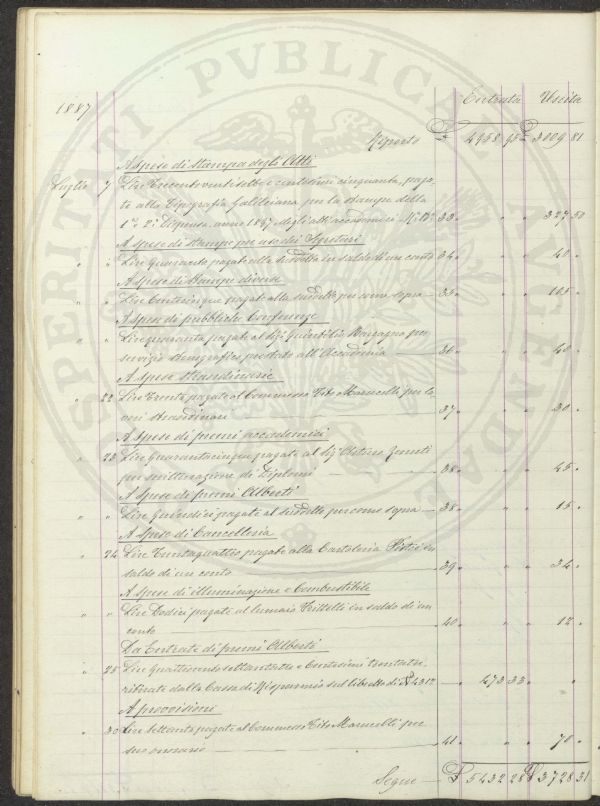 PROSPERITATI PVBLICAE AVGENDAE
1887
Entrata Uscita
Riporto £ 4958 95 £ 3009 81
A Spese di Stampa degli Atti
Luglio 7 Lire Trecentoventisette e centesimi cinquanta, paga-
te alla Tipografia Galileiana per la stampa della
1ª e 2ª Dispensa anno 1887 degli atti accademici 33. " " 327 50
A Spese di stampe per uso dei Segretari
" " Lire Quaranta pagate alla suddetta in saldo di un conto 34. " " 40 "
A Spese di Stampe diverse
" " Lire Centocinque pagate alla suddetta per come sopra 35. " " 105 "
A Spese di pubbliche Conferenze
" " Lire quaranta pagate al Sigr Quintilio per
servizio stenografico prestato all'Accademia 36. " " 40 "
A Spese straordinarie
" 22 Lire Trenta pagate al Commesso Tito Marucelli per la-
vori straordinari 37. " " 30 "
A Spese di premi accademici
" 23 Lire Quarantacinque pagate al Sigr Arturo
per scritturazione di Diplomi 38. " " 45 "
A Spese di premi Alberti
" " Lire Quindici pagate al suddetto per come sopra 38. " " 15 "
A Spese di Cancelleria
" 24 Lire Trentaquattro pagate alla Cartoleria in
saldo di un conto 39. " " 34 "
A Spese di illuminazione e Combustibile
" " Lire Dodici pagate al lumaio in saldo di un
conto 40. " " 12 "
Da Entrate di premi Alberti
" 28 Lire Quattrocento settantatre e Centesimi trentatre
ritirate dalla Cassa di Risparmio sul libretto di N 4312 " 473 33 " "
A provvisioni
" 30 Lire settanta pagate al Commesso Tito Marucelli per
suo onorario 41. " " 70 "
Segue £ 5432 28 £ 3728 31